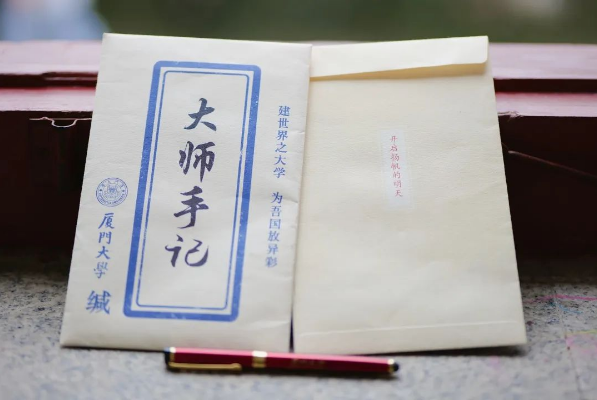 建世界之大学 为吾国放异彩
大师手记
厦門大學 缄
开启的明天